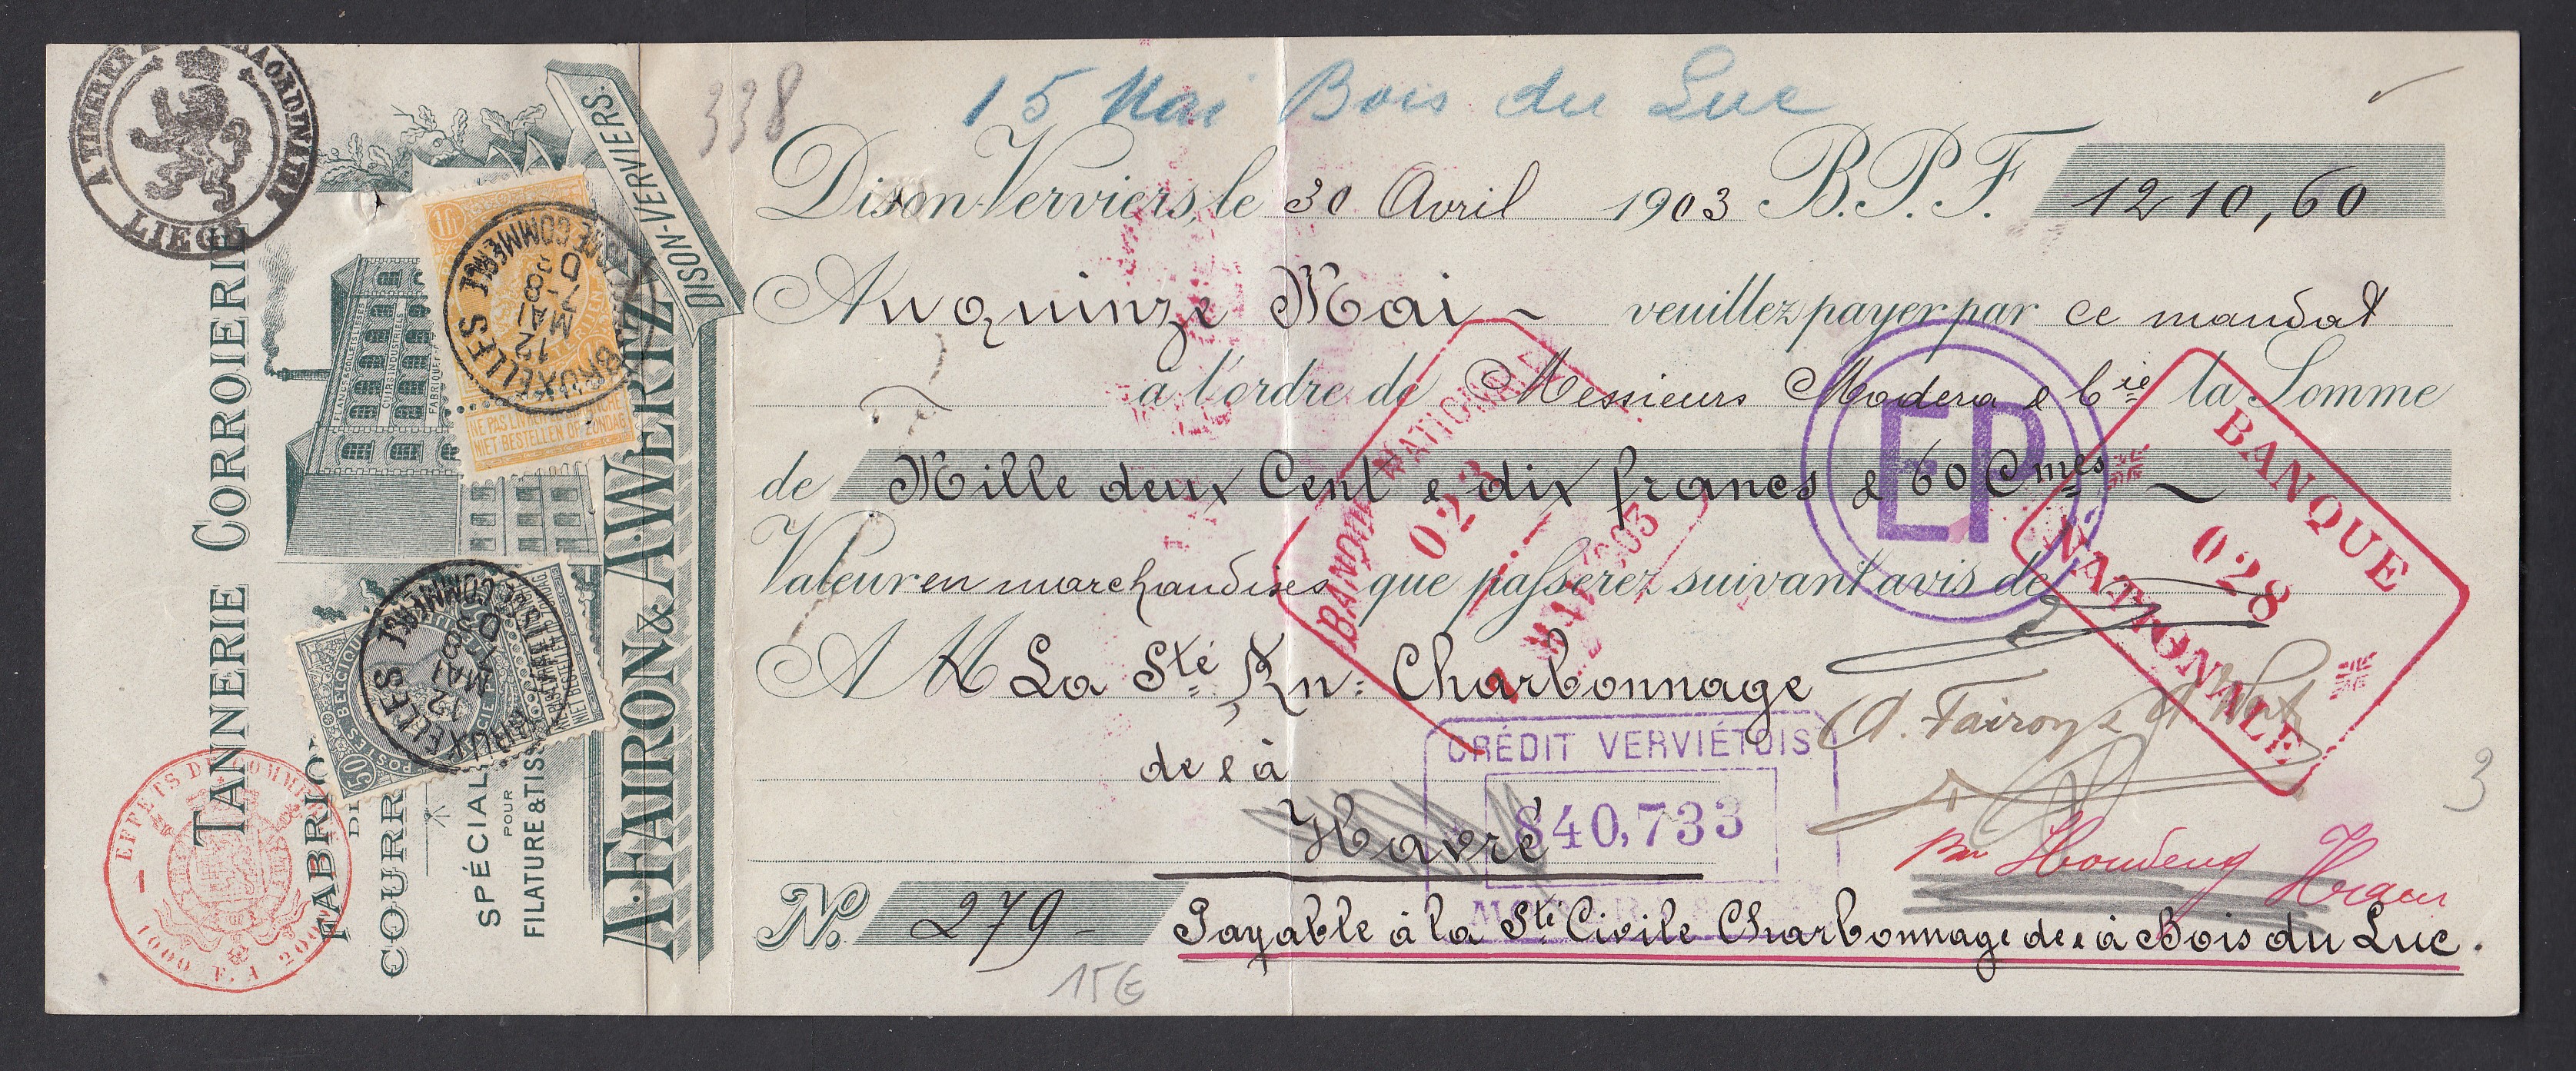 A TITRE EXTRAORDINAIRE
LIEGE
TANNERIE CORROIERIE
FABRIQUE
DE
COURR
SPÉCIAL
POUR
FILATURE & TISS
A. FAIRON & A. WERTZ
DISON-VERVIERS.
FLANCS & COLLETS LISSES
CUIRS INDUSTRIELS
FABRIQUE
1 Fr
NE PAS LIVRER LE DIMANCHE
NIET BESTELLEN OP ZONDAG
BRUXELLES 1
12 MAI
COMMERCE
POSTES BELGIQUE
50
NIET BESTELLEN OP ZONDAG
BRUXELLES 1
12 MAI
COMMERCE
EFFETS DE COMMERCE
1000 F. A 2000
338
15 Mai Bois du Luc
Dison-Verviers, le 30 Avril 1903 B.P.F. 1210,60
Au quinze Mai - veuillez payer par ce mandat
à l'ordre de Messieurs Modera & Cie la Somme
de Mille deux Cent e dix francs & 60 Cmes
Valeur en marchandises que passerez suivant avis de
A M La Sté An: Charbonnage
de e à
Havré
No. 279 -
Payable à la Sté Civile Charbonnage de e à Bois du Luc.
A. Fairon & A. Wertz
Houdeng
BANQUE NATIONALE
023
MAI 1903
EP
BANQUE
028
NATIONALE
CRÉDIT VERVIÉTOIS
840,733
15€
3